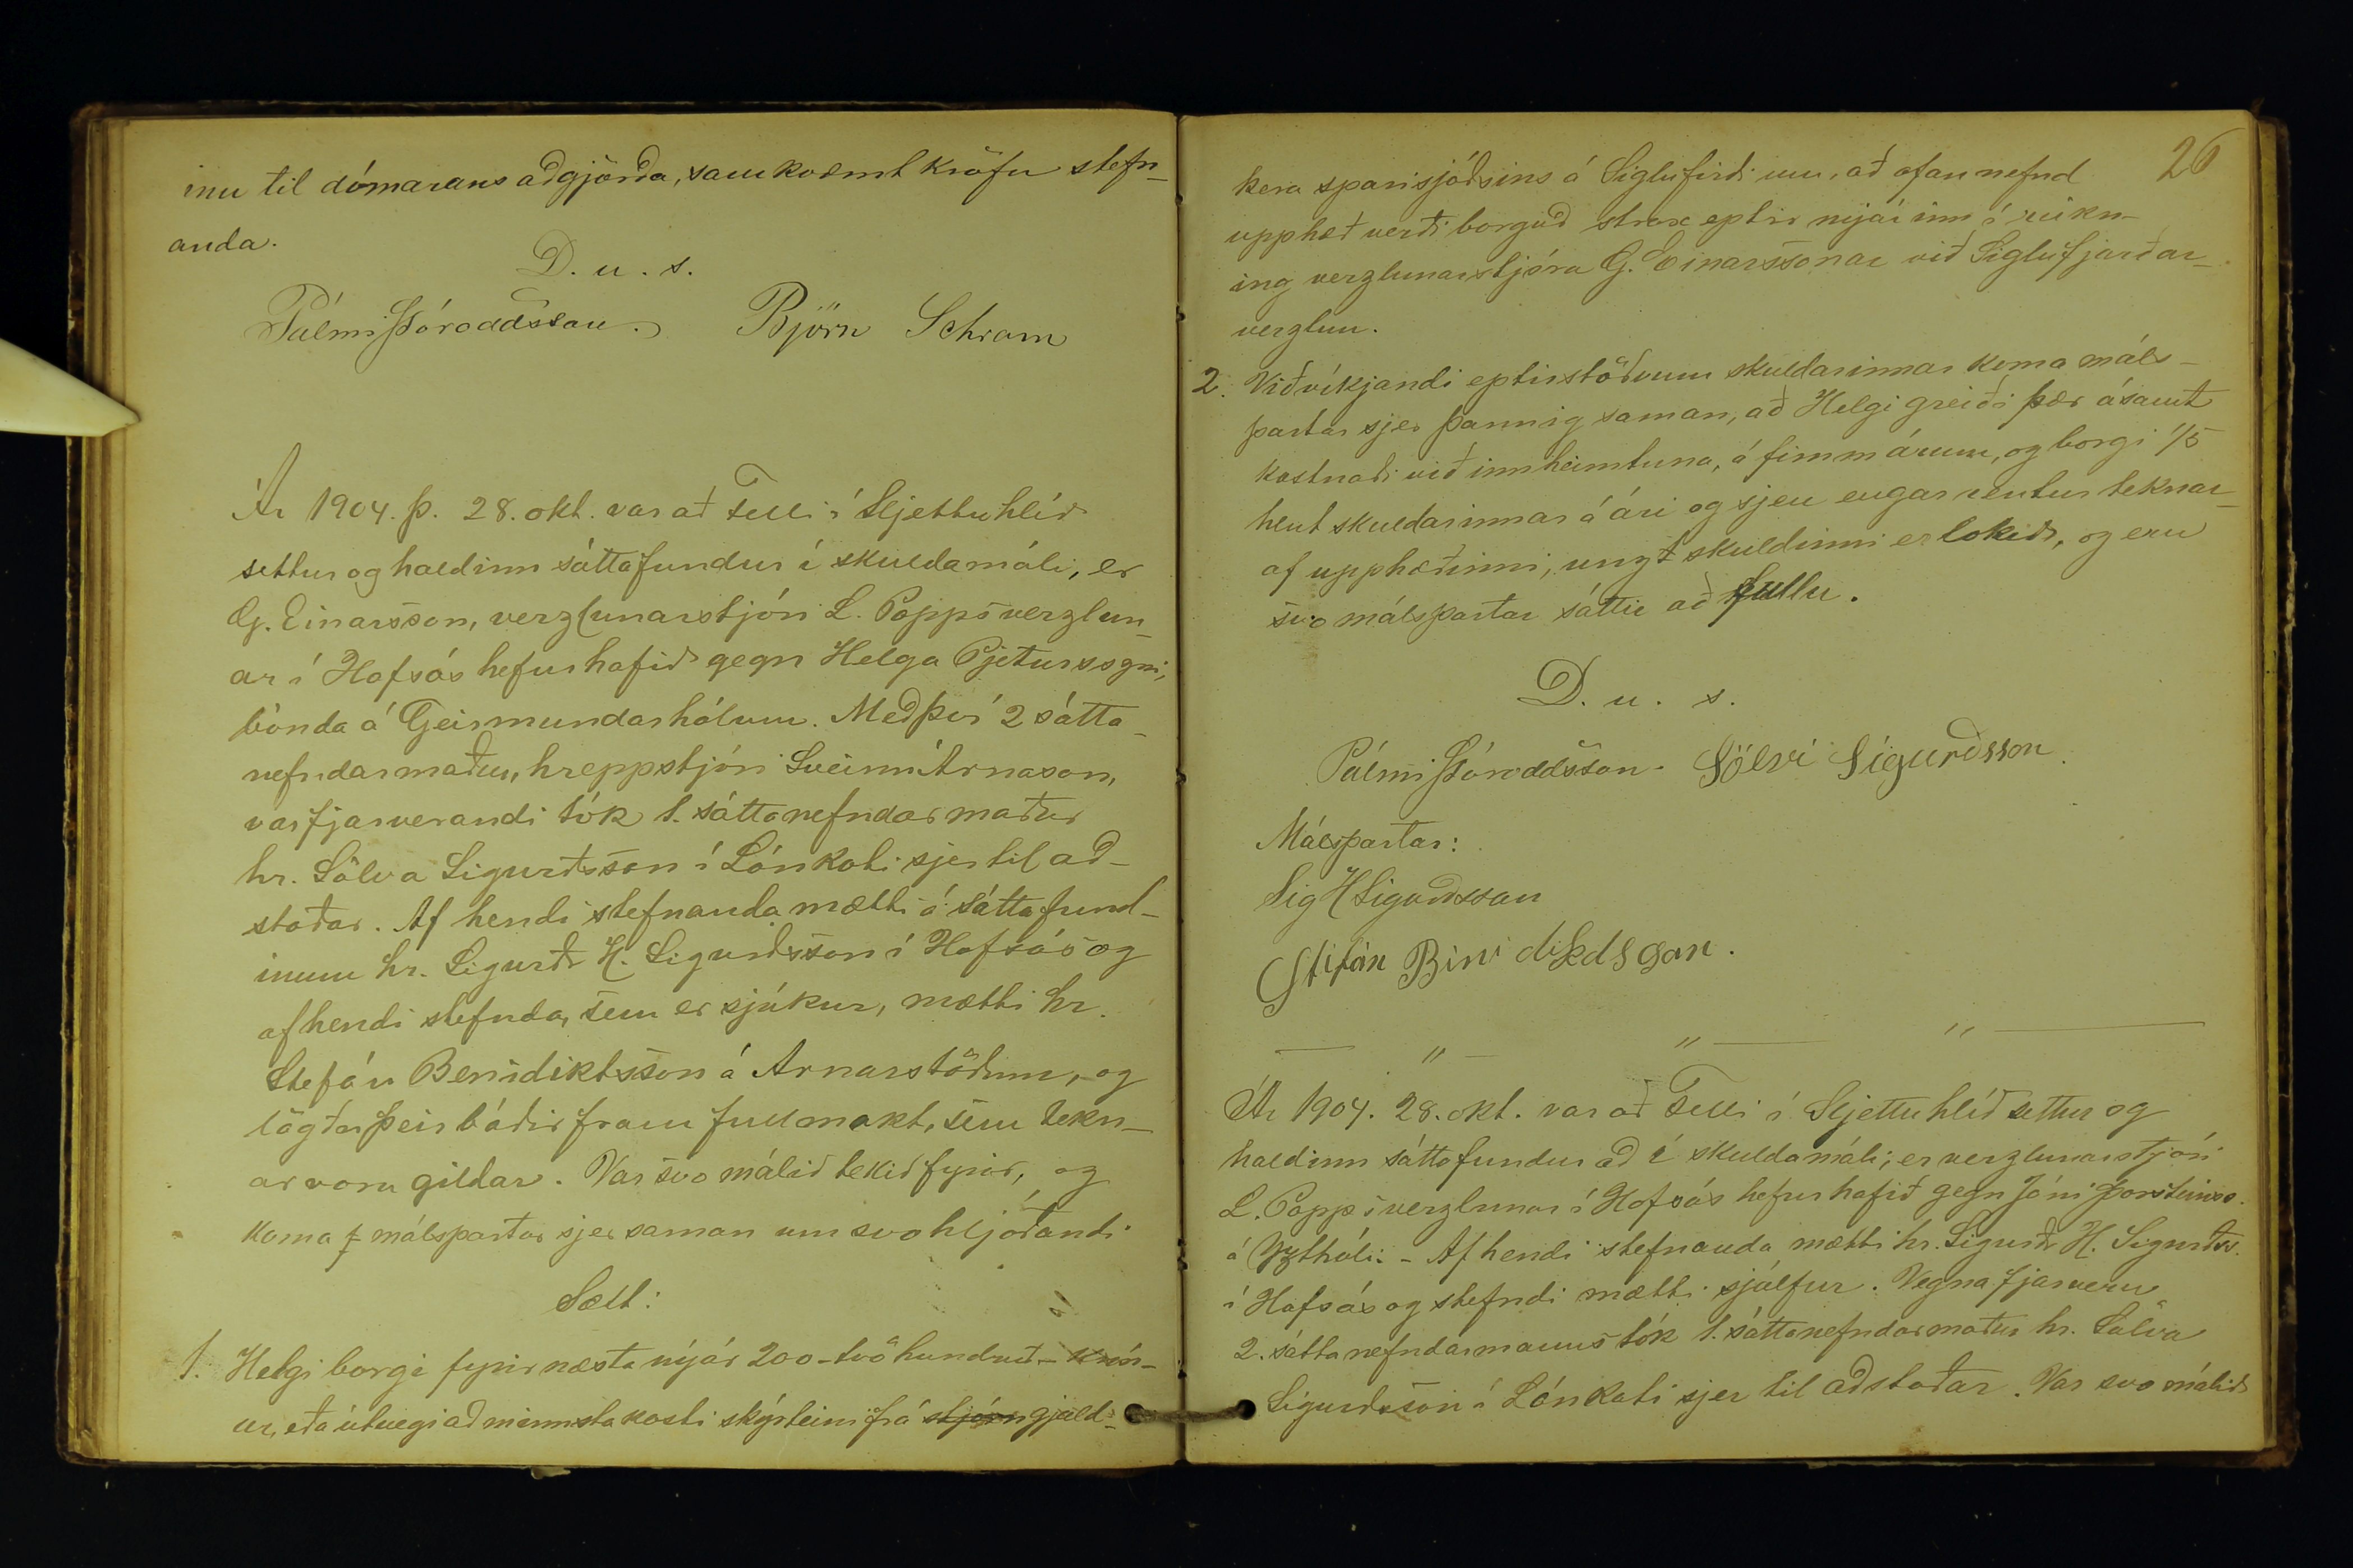 inu til dómarans aðgjörða, samkvæmt kröfu stefn-
anda.
D. u. s.
Pálmi Þóroddsson. Björn Schram
Ár 1904. þ. 28. okt. var að Felli í Sljettuhlíð
settur og haldinn sáttafundur í skuldamáli, er
G. Einarsson, verzlunarstjóri L. Popps verzlun-
ar í Hofsós hefur hafið gegn Helga Pjeturssyni,
bónda á Geirmundarhólum. Með því 2 sátta-
nefndarmaður, hreppstjóri Sveinn Árnason,
var fjarverandi tók 1. sáttanefndarmaður
hr. Sölva Sigurðsson í Lónkoti sjer til að-
stoðar. Af hendi stefnanda mætti á sáttafund-
inum hr. Sigurðr H. Sigurðsson í Hofsós og
af hendi stefnda, sem er sjúkur, mætti hr.
Stefán Benidiktsson á Arnarstöðum, og
lögðu þeir báðir fram fullmakt, sem tekn-
ar voru gildar. Var svo málið tekið fyrir, og
koma málspartar sjer saman um svohljóðandi
Sætt:
1. Helgi borgi fyrir næsta nýár 200 - tvö hundruð - krón-
ur, eða útvegi að minnsta kosti skýrteini frá stjórn gjald-
26
kera sparisjóðsins á Siglufirði um, að ofannefnd
upphæð verði borguð strax eptir nýár inn í reikn-
ing verzlunarstjóra G. Einarssonar við Siglufjarðar-
verzlun.
2. Viðvíkjandi eptirstöðvum skuldarinnar koma máls-
partar sjer þannig saman, að Helgi greiði þær ásamt
kostnaði við innheimtuna, á fimm árum, og borgi 1/5
hlut skuldarinnar á ári og sjeu engar rentur teknar
af upphæðinni, unz skuldinni er lokið, og eru
svo málspartar sáttir að fullu.
D. u. s.
Pálmi Þóroddsson. Sölvi Sigurðsson.
Málspartar:
Sig H Sigurðsson
Stifán Bini diktsson.
Ár 1904. 28. okt. var að Felli í Sljettuhlíð settur og
haldinn sáttafundur að í skuldamáli, er verzlunarstjóri
L. Popps verzlunar í Hofsós hefur hafið gegn Jóni Þorsteinss.
á Ythóli. - Af hendi stefnanda mætti hr. Sigurðr H. Sigurðss.
í Hofsós og stefndi mætti sjálfur. Vegna fjarveru
2. sáttanefndarmanns tók 1. sáttanefndarmaður hr. Sölva
Sigurðsson í Lónkoti sjer til aðstoðar. Var svo málið